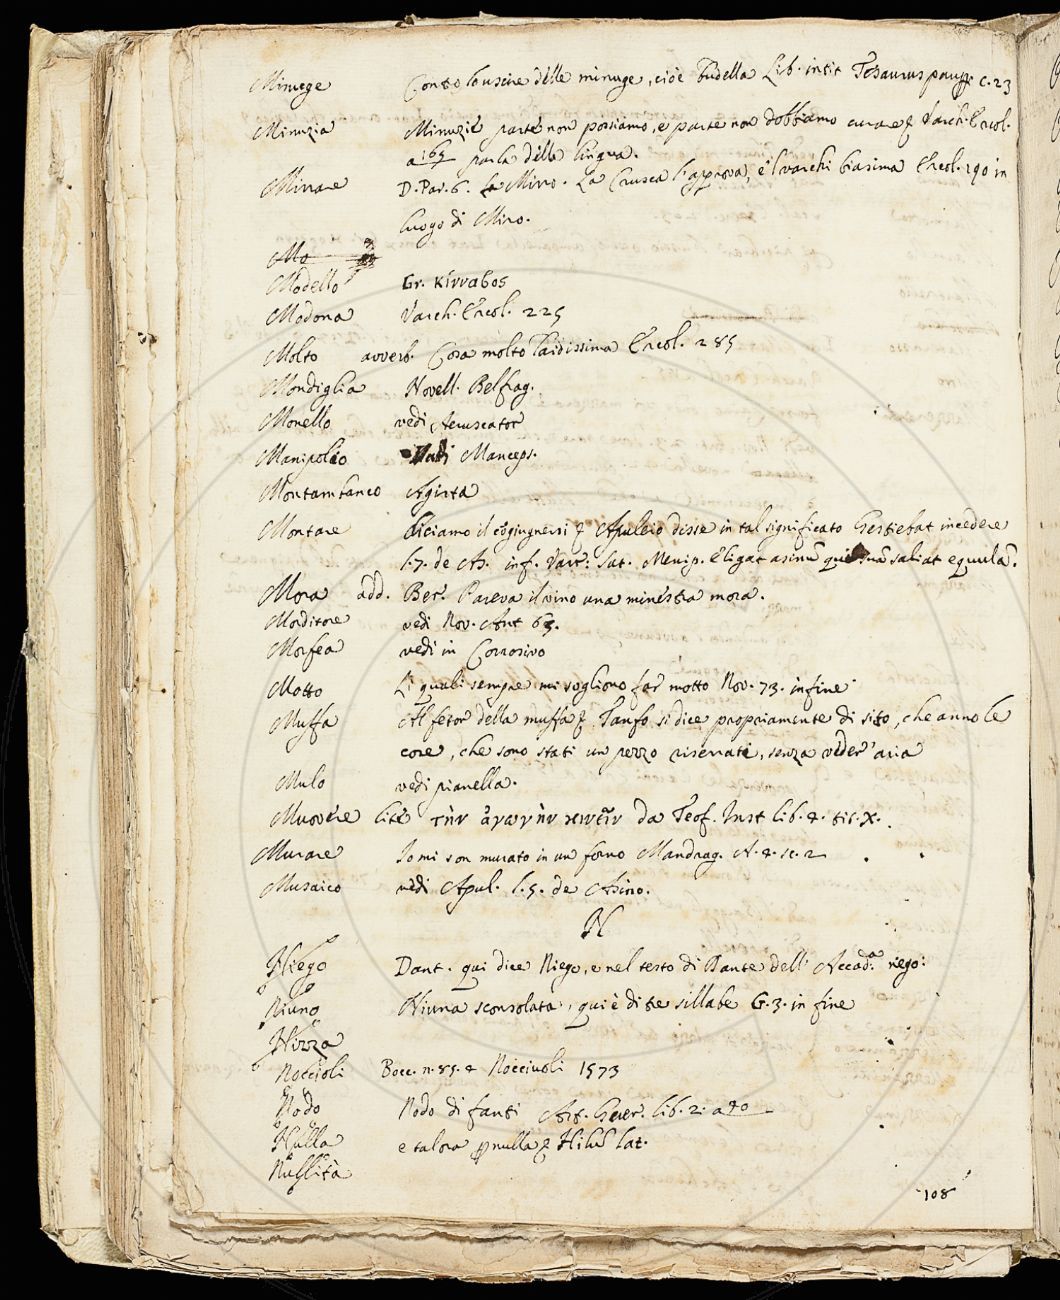 Minuge Contro l'uscire delle minuge, cioè budella Lib. intit. Tesaurus paup. c. 23
Minuzia Minuzie parte non possiamo, e parte non dobbiamo curare Varch. Ercol.
a 165 parla della lingua.
Mirrare D. Par. 6. Mirro. La Crusca l'approva, e'l Varchi biasima Ercol. 190 in
luogo di Miro.
Mo
Modello Gr. κίνναβος
Madona Varch. Ercol. 225
Molto avverb. Cosa molto laidissima Ercol. 285
Mondiglia Novell. Belfag.
Monello vedi Aeruscator
Manipolio Vedi Manceps.
Montambanco Agirta
Montare diciamo il cõgiugnersi Apuleio disse in tal significato Gestiebat incedere
l. 7. de As. inf. Varr: Sat. Menip. Eligat asinũ qui suã saliat equulã.
Mora add. Ber. Pareva il vino una minestra mora.
Morditore vedi Nov. Ant 63.
Morfea vedi in Corrosivo
Motto Li quali sempre mi sogliono far motto Nov. 73. in fine
Muffa Al fetor della muffa Tanfo si dice propriamente di sito, che anno le
cose, che sono stati un pezzo riserrati, senza veder' aria
Mulo vedi pianella.
Muovere lite τὴν ἀγωγὴν κινεῖν da Teof. Inst lib. 4. tit. X.
Murare Io mi son murato in un forno Mandrag. A. 4. sc. 2
Musaico vedi Apul. l. 5. de Asino.
N
Niego Dant. qui dice Niego, e nel testo di Dante delli Accad.ª niego:
Niuno Niuna sconsolata, qui è di tre sillabe G. 3. in fine
Nizza
Noccioli Bocc. n. 85. 4 Nocciuoli 1573
Nodo Nodo di fanti Art. Guer. lib. 2. a 40
Nulla e talora nulla Hilũ lat.
Nullità
108